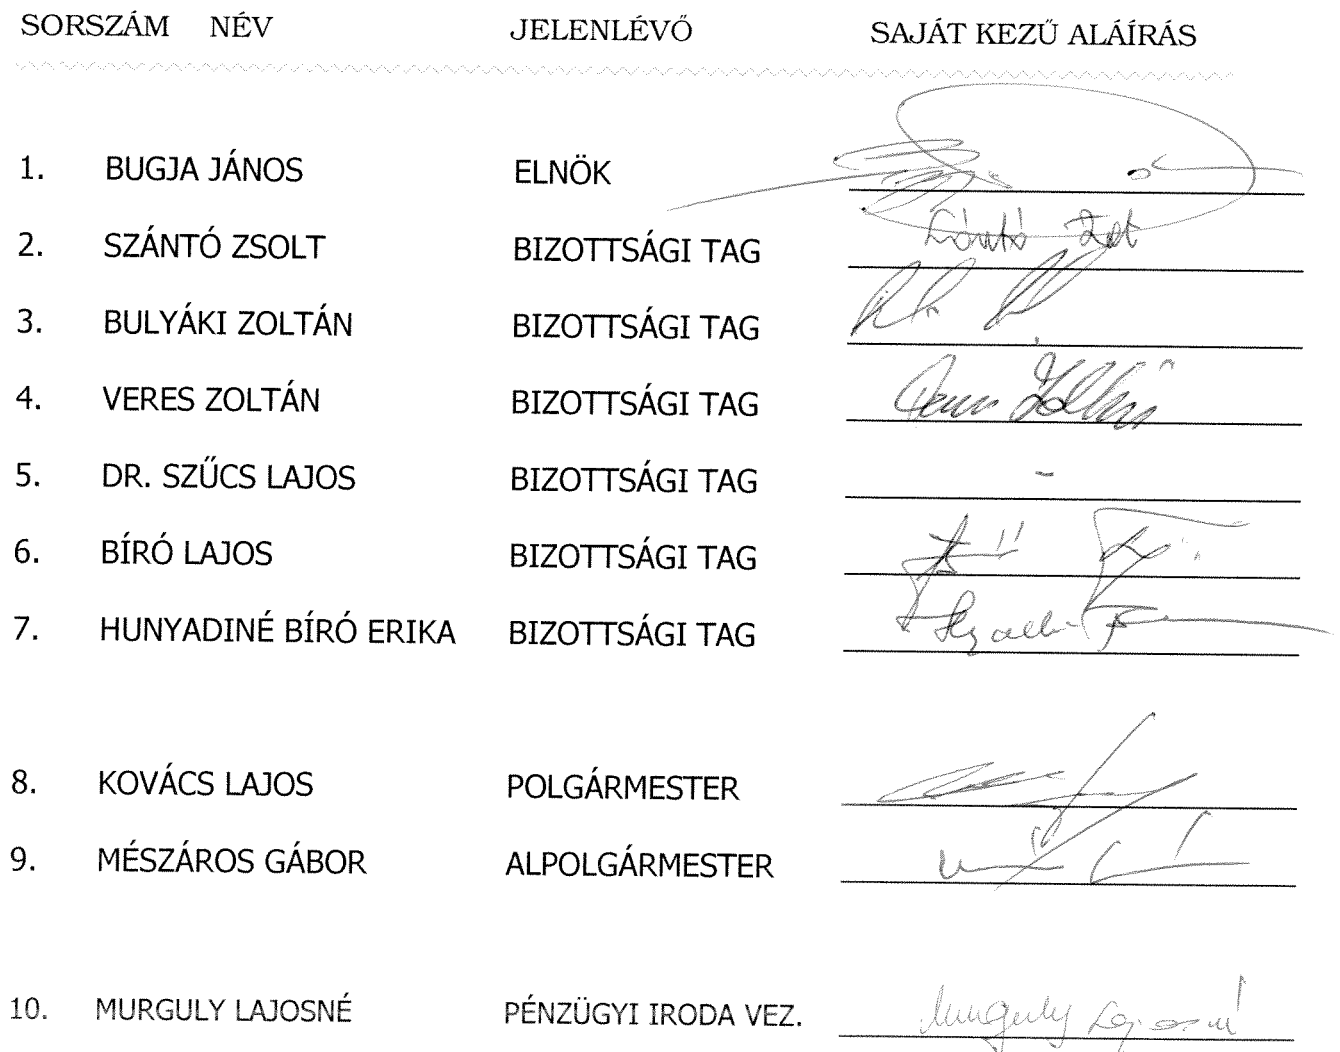 SORSZÁM NÉV JELENLÉVŐ SAJÁT KEZŰ ALÁÍRÁS
1. BUGJA JÁNOS ELNÖK
2. SZÁNTÓ ZSOLT BIZOTTSÁGI TAG Szántó Zsolt
3. BULYÁKI ZOLTÁN BIZOTTSÁGI TAG
4. VERES ZOLTÁN BIZOTTSÁGI TAG Veres Zoltán
5. DR. SZŰCS LAJOS BIZOTTSÁGI TAG -
6. BÍRÓ LAJOS BIZOTTSÁGI TAG
7. HUNYADINÉ BÍRÓ ERIKA BIZOTTSÁGI TAG
8. KOVÁCS LAJOS POLGÁRMESTER
9. MÉSZÁROS GÁBOR ALPOLGÁRMESTER
10. MURGULY LAJOSNÉ PÉNZÜGYI IRODA VEZ. Murguly Lajosné